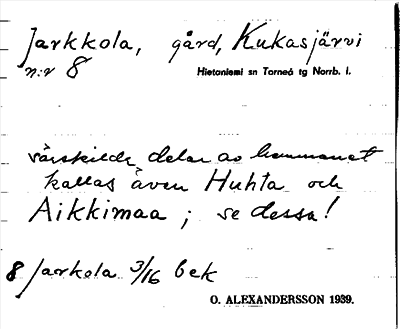 Jarkkola, gård, Kukasjärvi
n:r 8 Hietaniemi sn Torneå tg Norrb. l.
särskilda delar av hemmanet
kallas även Huhta och
Aikkimaa ; se dessa!
8 Jarkola 3/16 bek
O. ALEXANDERSSON 1939.